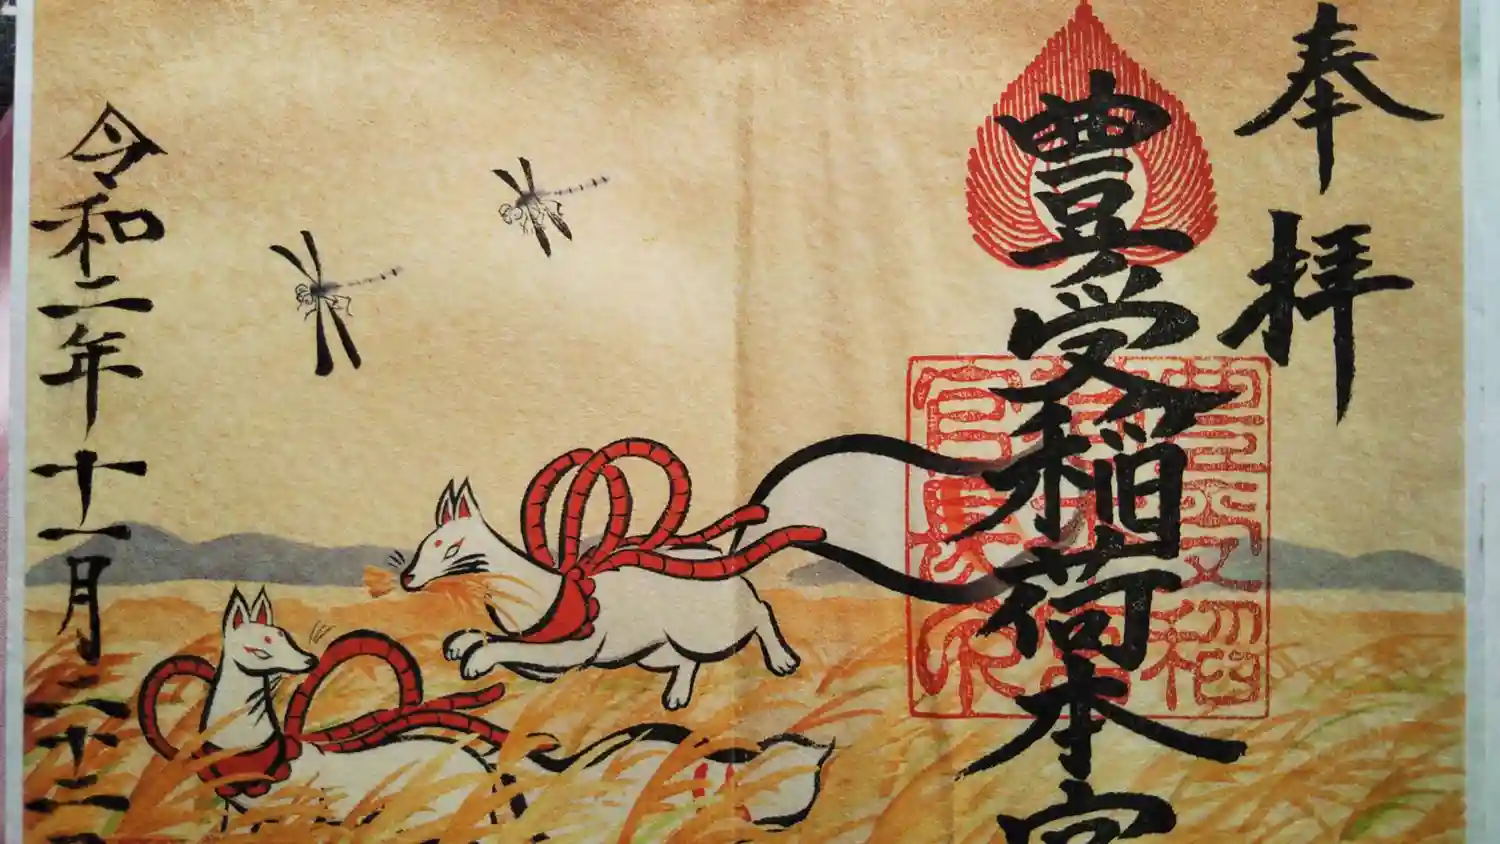 奉拝
豊受稲荷本宮
令和二年十一月二十二日